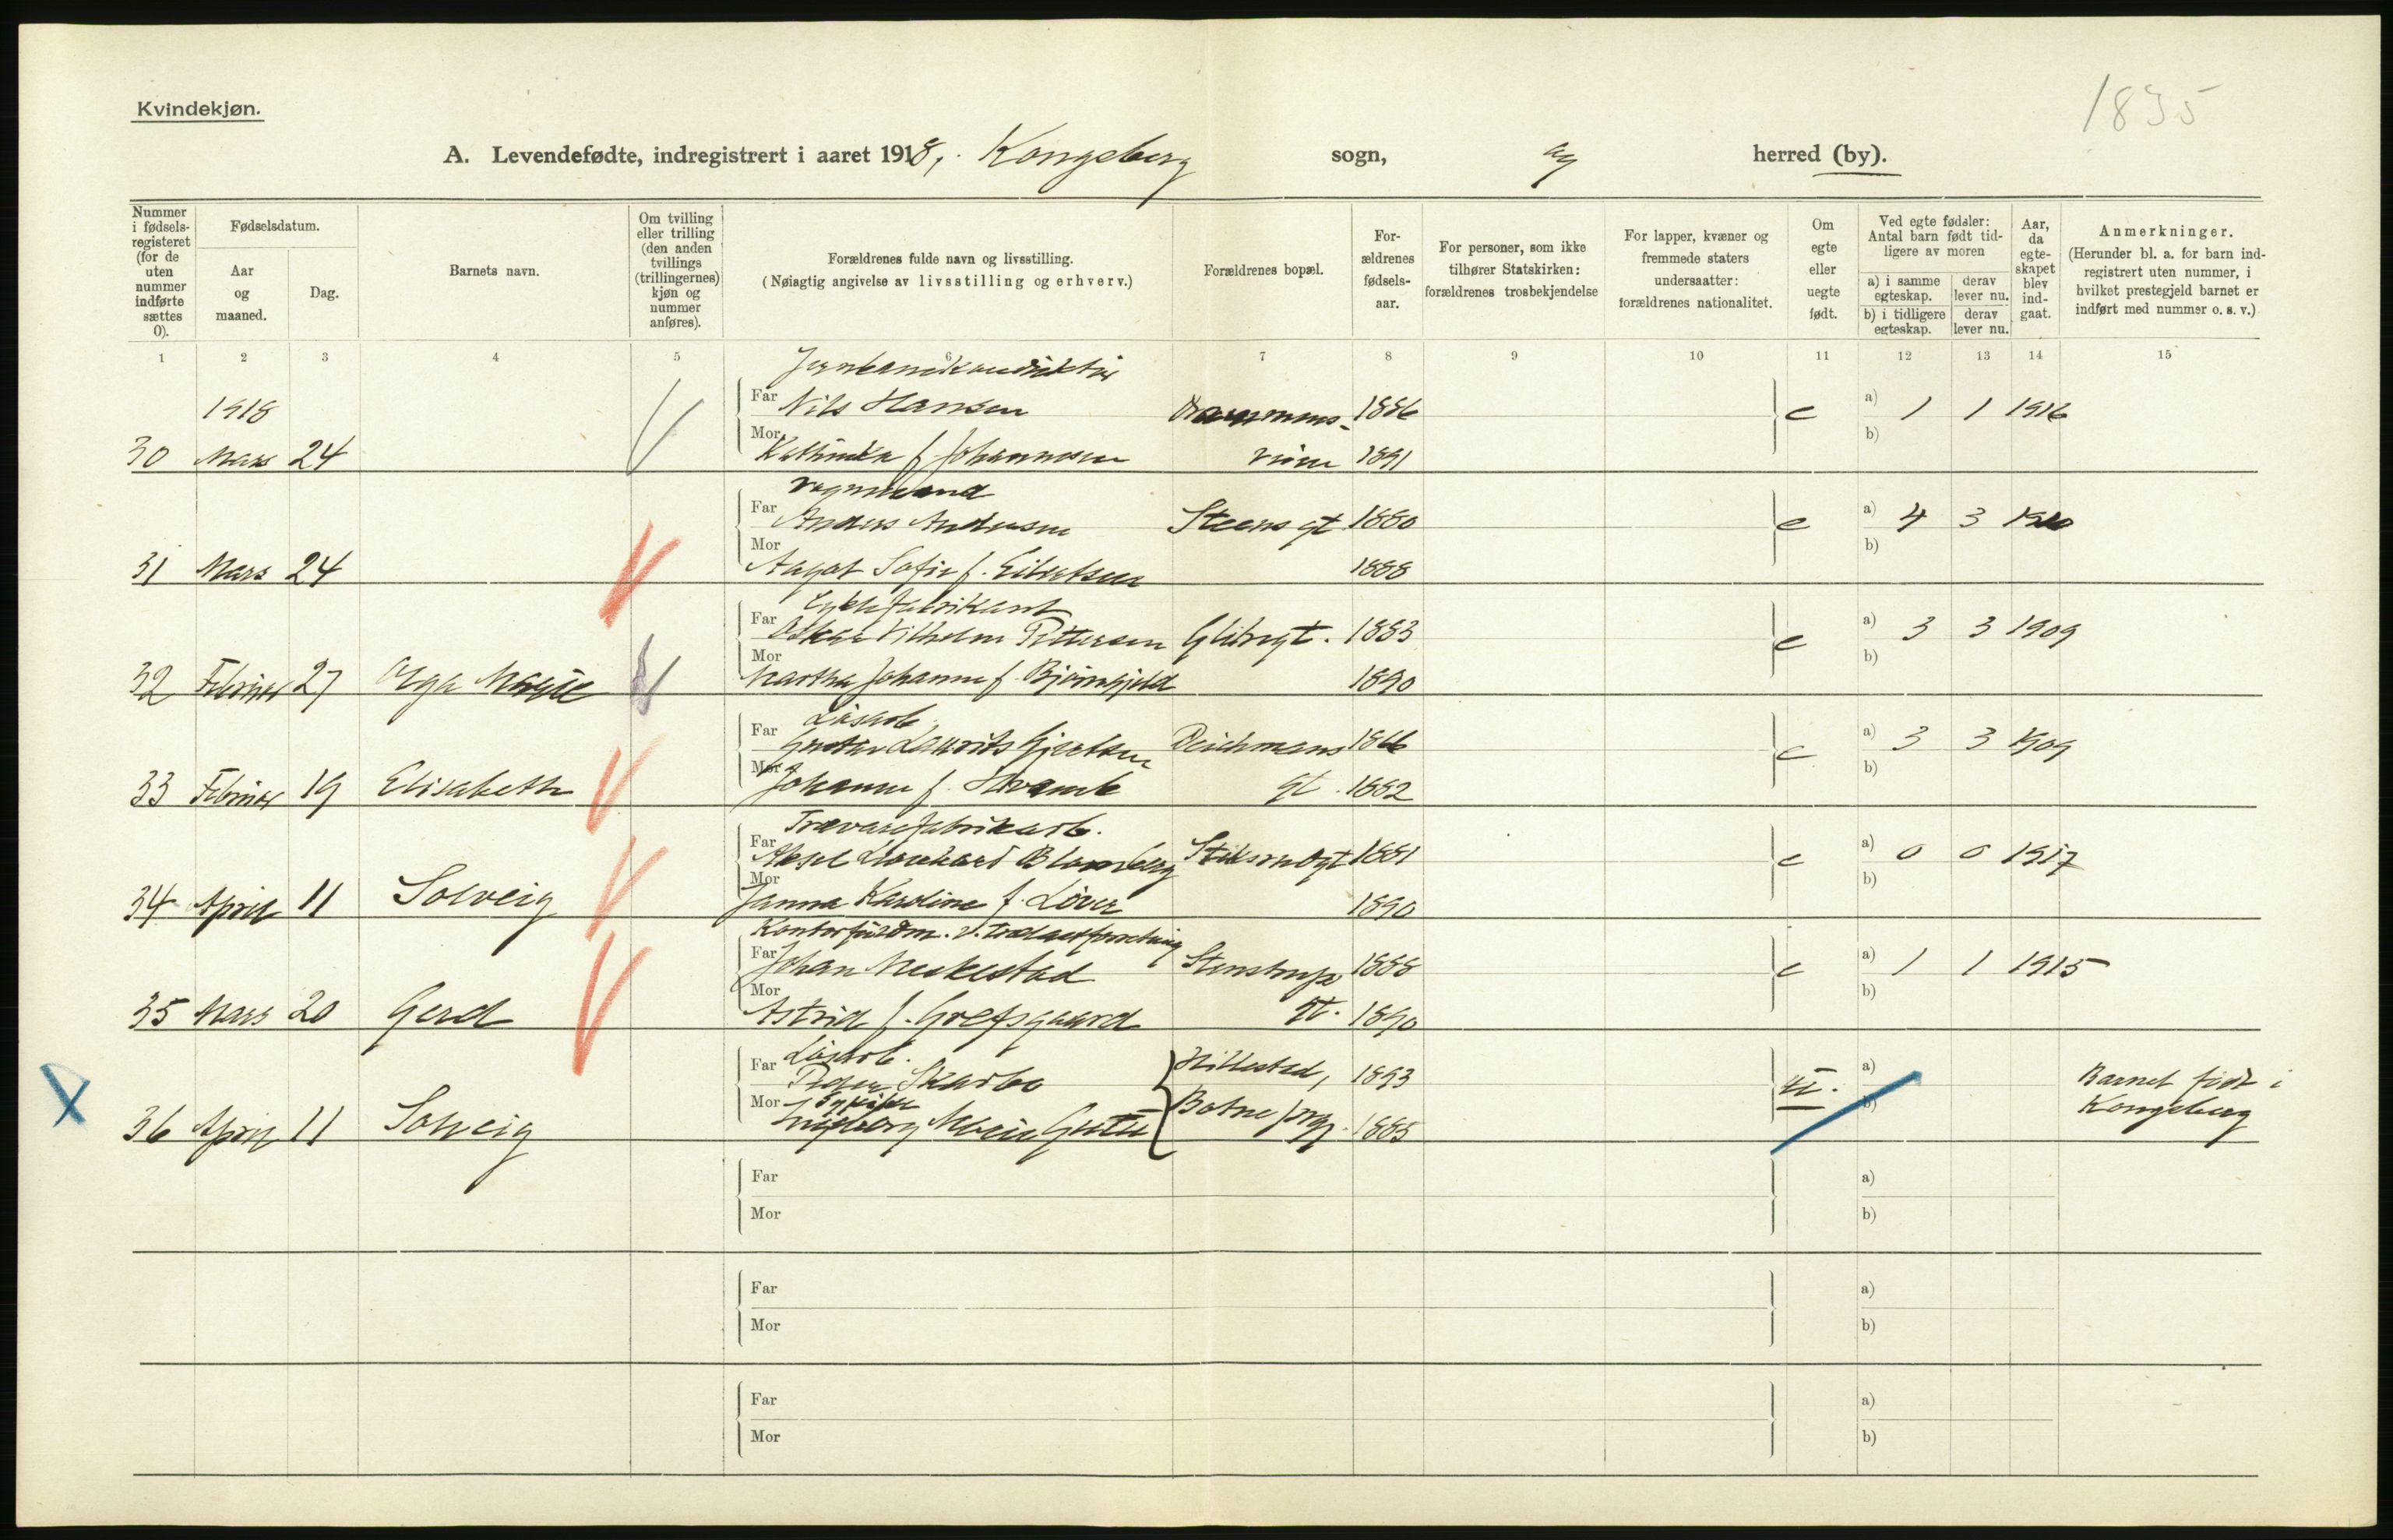 Kvindekjøn.
1835
A. Levendefødte, indregistrert i aaret 1918, Kongsberg sogn, og herred (by).
Nummer i fødselsregisteret (for de uten nummer indførte sættes 0).
Fødselsdatum.
Aar og maaned.
Dag.
Barnets navn.
Om tvilling eller trilling (den anden tvillings (trillingernes) kjøn og nummer anføres).
Forældrenes fulde navn og livsstilling.
(Nøiagtig angivelse av livsstilling og erhverv.)
Forældrenes bopæl.
Forældrenes fødselsaar.
For personer, som ikke tilhører Statskirken: forældrenes trosbekjendelse
For lapper, kvæner og fremmede staters undersaatter: forældrenes nationalitet.
Om egte eller uegte født.
Ved egte fødsler: Antal barn født tidligere av moren
a) i samme egteskap. derav lever nu.
b) i tidligere egteskap. derav lever nu.
Aar, da egteskapet blev indgaat.
Anmerkninger.
(Herunder bl. a. for barn indregistrert uten nummer, i hvilket prestegjeld barnet er indført med nummer o. s. v.)
1 2 3 4 5 6 7 8 9 10 11 12 13 14 15
Jernbanekonduktør
1918 Far Nils Hansen Drammens- 1886 e a) 1 1 1916
30 Mars 24 Mor Kathinka f. Johannesen veien 1891 b)
Vognmand
Far Anders Andersen Steens gt 1880 e a) 4 3 1910
31 Mars 24 Mor Aagot Sofie f. 1888 b)
Cyklefabrikant
Far Oskar Vilhelm Pettersen 1883 e a) 3 3 1909
32 Februar 27 Olga Mor Martha Johanne f. 1890 b)
Løsarb.
Far Laurits Deichmans 1866 e a) 3 3 1909
33 Februar 19 Elisabeth Mor Johanne f. gt. 1882 b)
Trævarefabrikarb.
Far Aksel Blomberg 1881 e a) 0 0 1917
34 April 11 Solveig Mor Janna Karoline f. Løver 1890 b)
Far Johan Meskestad Stenstrups 1888 e a) 1 1 1915
35 Mars 20 Gerd Mor Astrid f. Grefsgaard gt. 1890 b)
Løsarb.
Far Peder Skarbo Hillestad, 1893 u. a) Barnet født i
36 April 11 Solveig Mor Ingeborg Marie Botne prgj. 1885 b) Kongsberg
Far a)
Mor b)
Far a)
Mor b)
Far a)
Mor b)